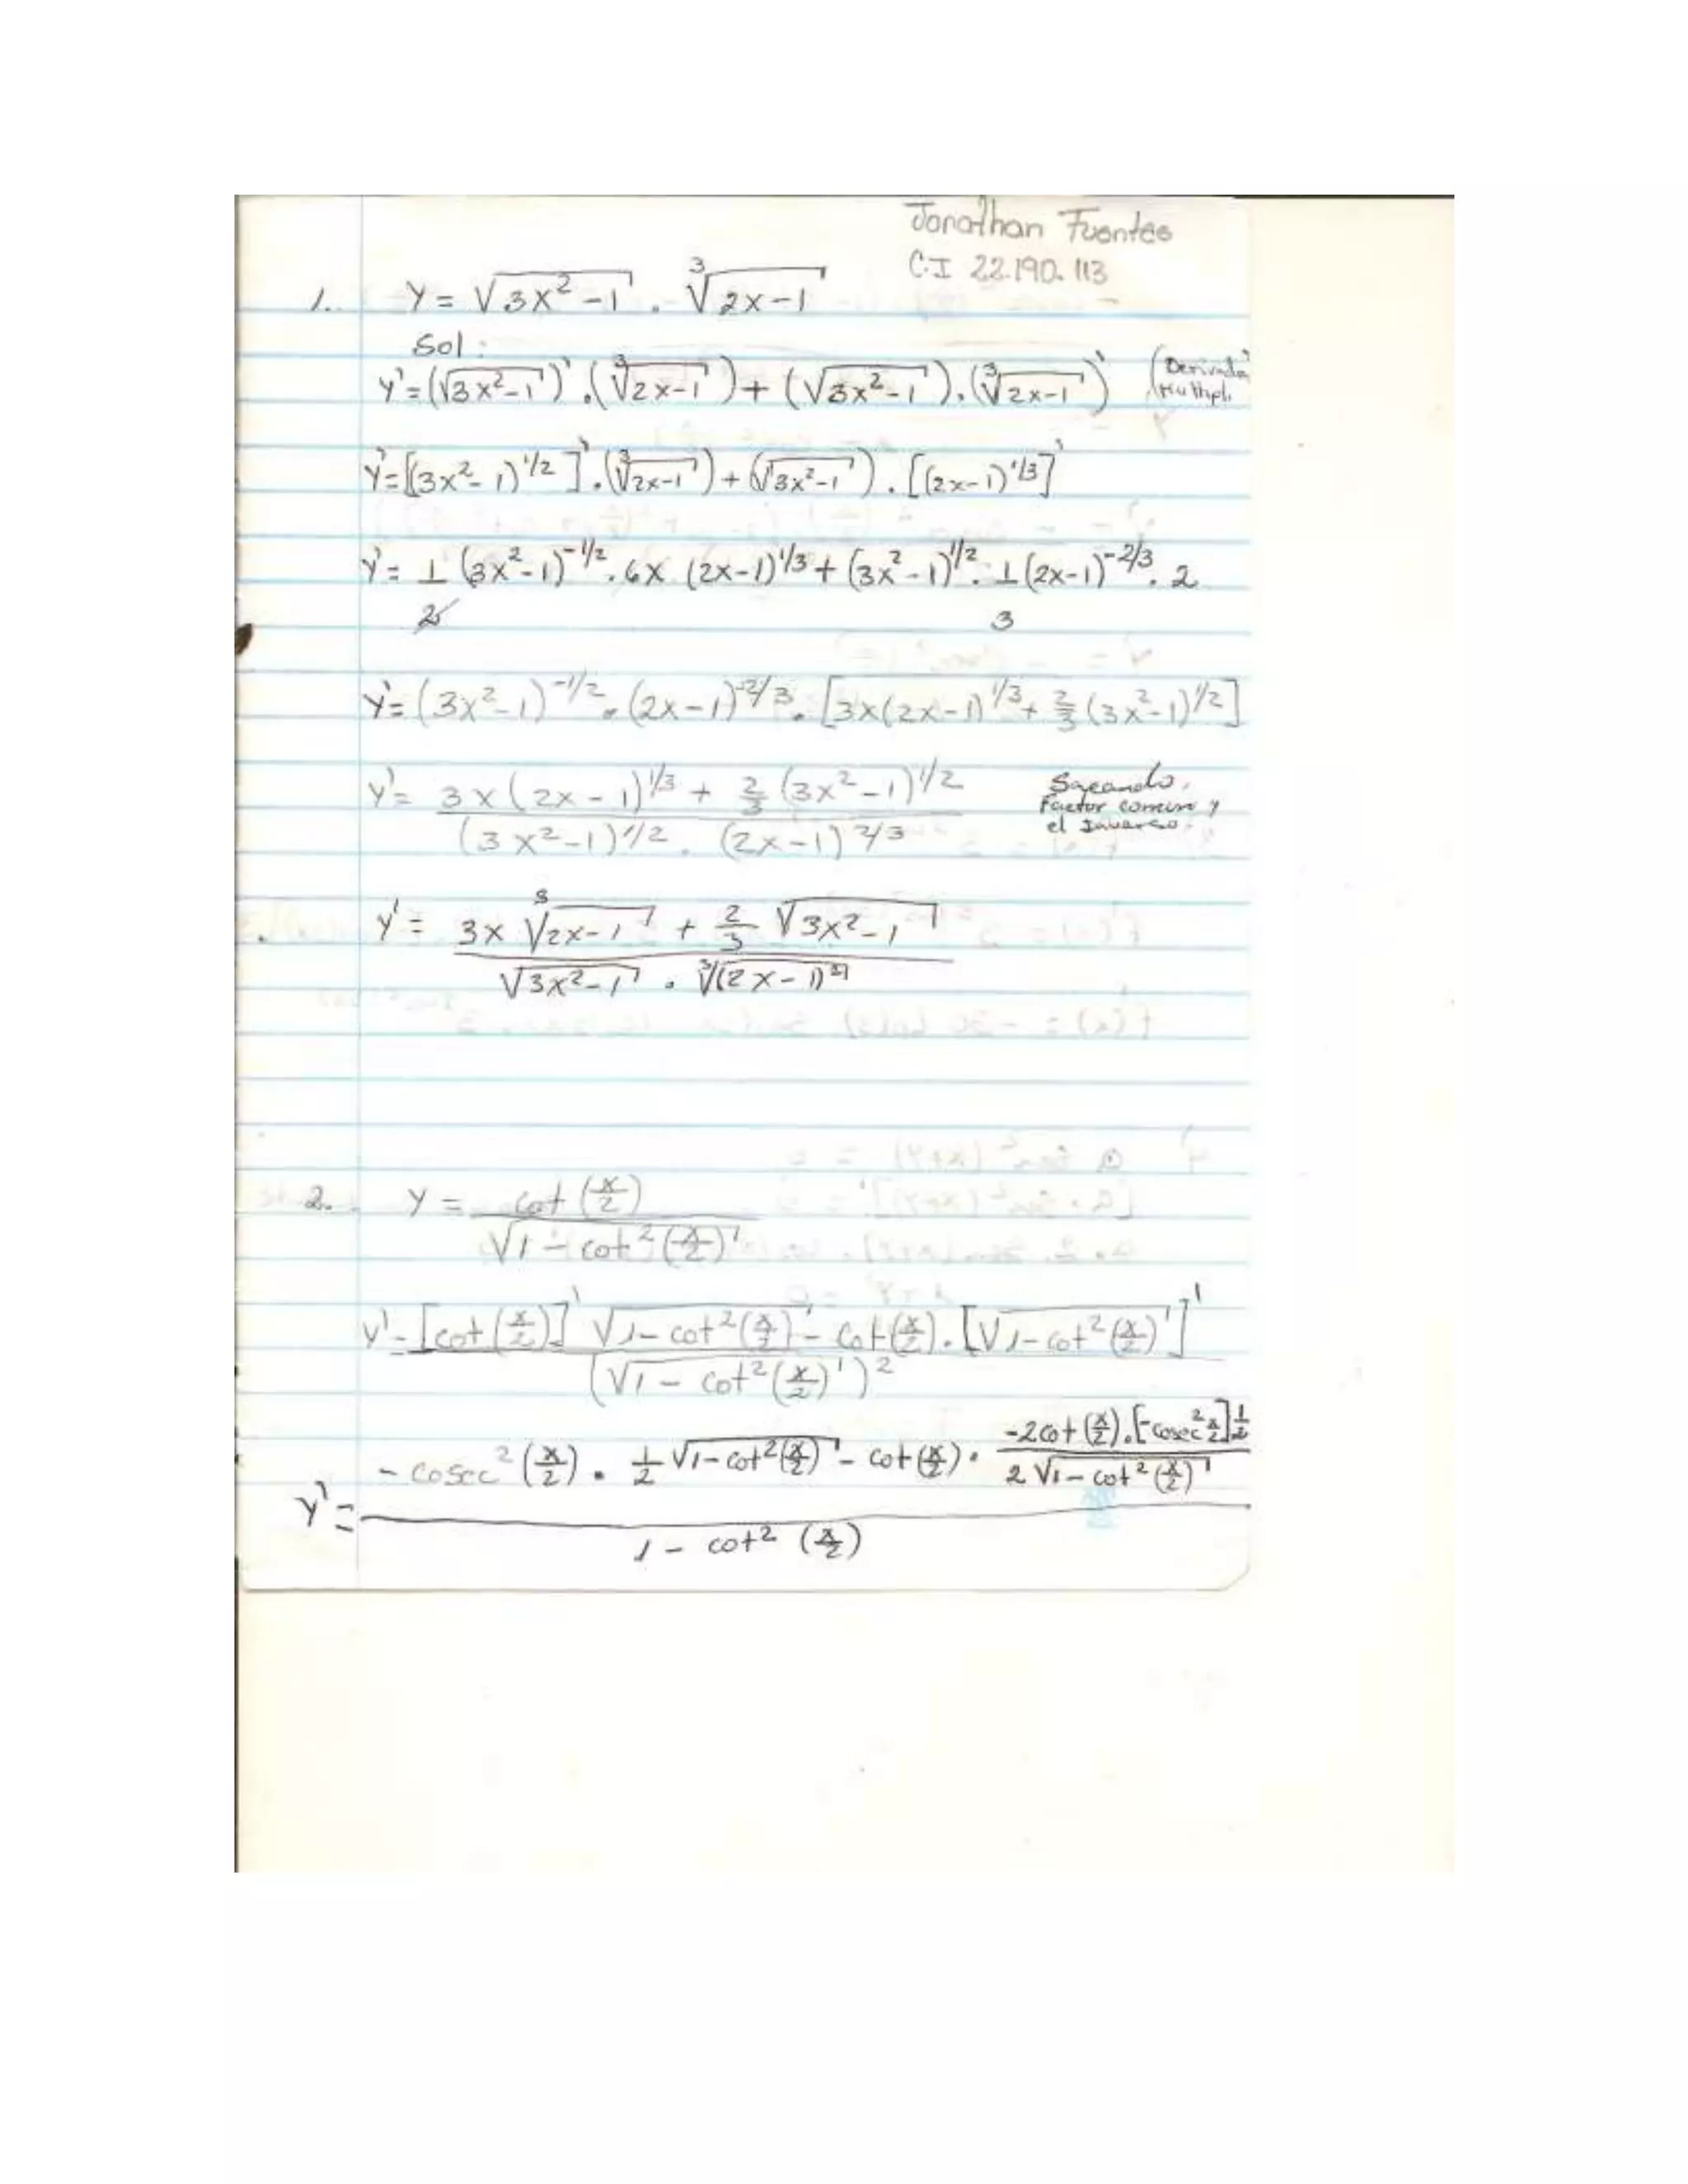 Jonathan Fuentes
C.I 22.190.113
1. Y = √(3x² - 1) . ∛(2x - 1)
Sol:
Y' = (√(3x² - 1))' . (∛(2x - 1)) + (√(3x² - 1)) . (∛(2x - 1))' (Derivada Multipl.
Y' = [(3x² - 1)^1/2]' . (∛(2x - 1)) + (√(3x² - 1)) . [(2x - 1)^1/3]'
Y' = 1/2 (3x² - 1)^-1/2 . 6x (2x - 1)^1/3 + (3x² - 1)^1/2 . 1/3 (2x - 1)^-2/3 . 2
Y' = (3x² - 1)^-1/2 . (2x - 1)^-2/3 . [3x(2x - 1)^1/3 + 2/3 (3x² - 1)^1/2]
Y' = 3x(2x - 1)^1/3 + 2/3 (3x² - 1)^1/2 / (3x² - 1)^1/2 . (2x - 1)^2/3
Sacando.
Factor comun y
el Inverso.
y' = 3x ∛(2x - 1) + 2/3 √(3x² - 1) / √(3x² - 1) . ∛((2x - 1)²)
2. Y = cot (x/2) / √(1 - cot² (x/2))
y' = [cot (x/2)]' √(1 - cot² (x/2)) - cot (x/2) . [√(1 - cot² (x/2))]' / (√(1 - cot² (x/2)))²
y' = - cosec² (x/2) . 1/2 √(1 - cot² (x/2)) - cot (x/2) . -2cot (x/2) . [-cosec² x/2] 1/2 / 2 √(1 - cot² (x/2)) / 1 - cot² (x/2)